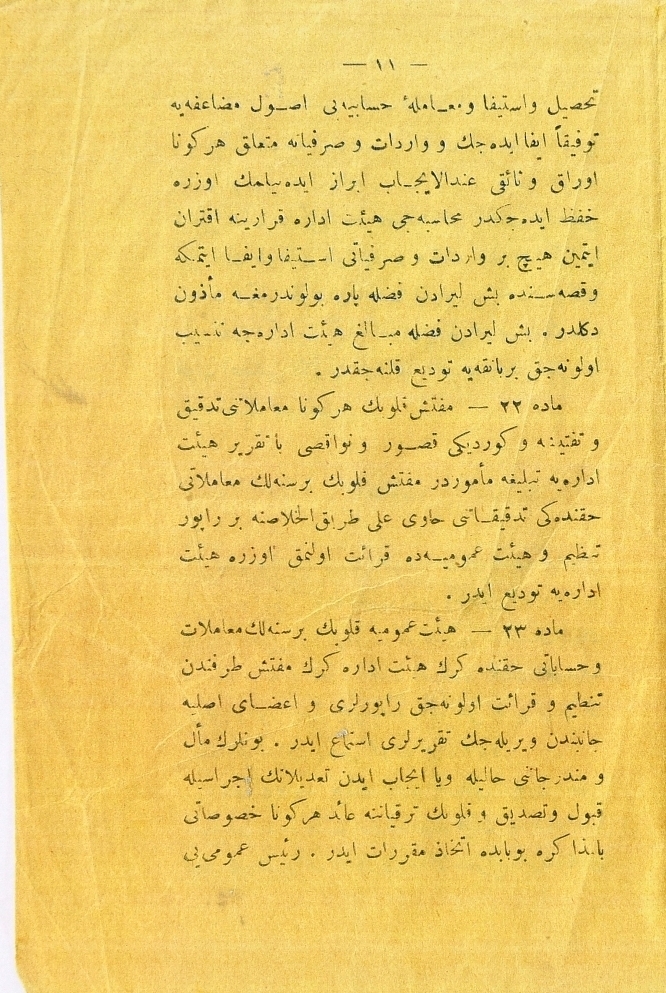 — ١١ —
تحصیل واستیفا ومعاملهٔ حسابیه‌یی اصول مضاعفه‌یه
توفیقاً ایفا ایده‌جك و واردات و صرفیاته متعلق هركونا
اوراق وثائقی عندالایجاب ابراز ایده‌بیلمك اوزره
حفظ ایده‌جكدر محاسبه‌جی هیئت اداره قرارینه اقتران
ایتمین هیچ بر واردات و صرفیاتی استیفا وایفا ایتمكه
وقصه‌سنده بش لیرادن فضله پاره بولوندرمغه مأذون
دكلدر . بش لیرادن فضله مبالغ هیئت اداره‌جه تنسیب
اولونه‌جق بربانقه‌یه تودیع قلنه‌جقدر .
ماده ٢٢ — مفتش قلوبك هركونا معاملاتنی تدقیق
و تفتیشه و كوردیكی قصور و نواقصی با تقریر هیئت
اداره‌یه تبلیغه مأموردر مفتش قلوبك برسنه‌لك معاملاتی
حقنده‌كی تدقیقاتنی حاوی علی طریق الخلاصه بر راپور
تنظیم و هیئت عمومیه‌ده قرائت اولنمق اوزره هیئت
اداره‌یه تودیع ایدر .
ماده ٢٣ — هیئت عمومیه قلوبك برسنه‌لك معاملات
وحساباتی حقنده كرك هیئت اداره كرك مفتش طرفندن
تنظیم و قرائت اولونه‌جق راپورلری و اعضای اصلیه
جانبندن ویریله‌جك تقریرلری استماع ایدر . بونلرك مأل
و مندرجاتنی حالیله ویا ایجاب ایدن تعدیلاتك اجراسیله
قبول وتصدیق و قلوبك ترقیاتنه عائد هركونا خصوصاتی
بالمذاكره بوبابده اتخاذ مقررات ایدر . رئیس عمومی‌یی